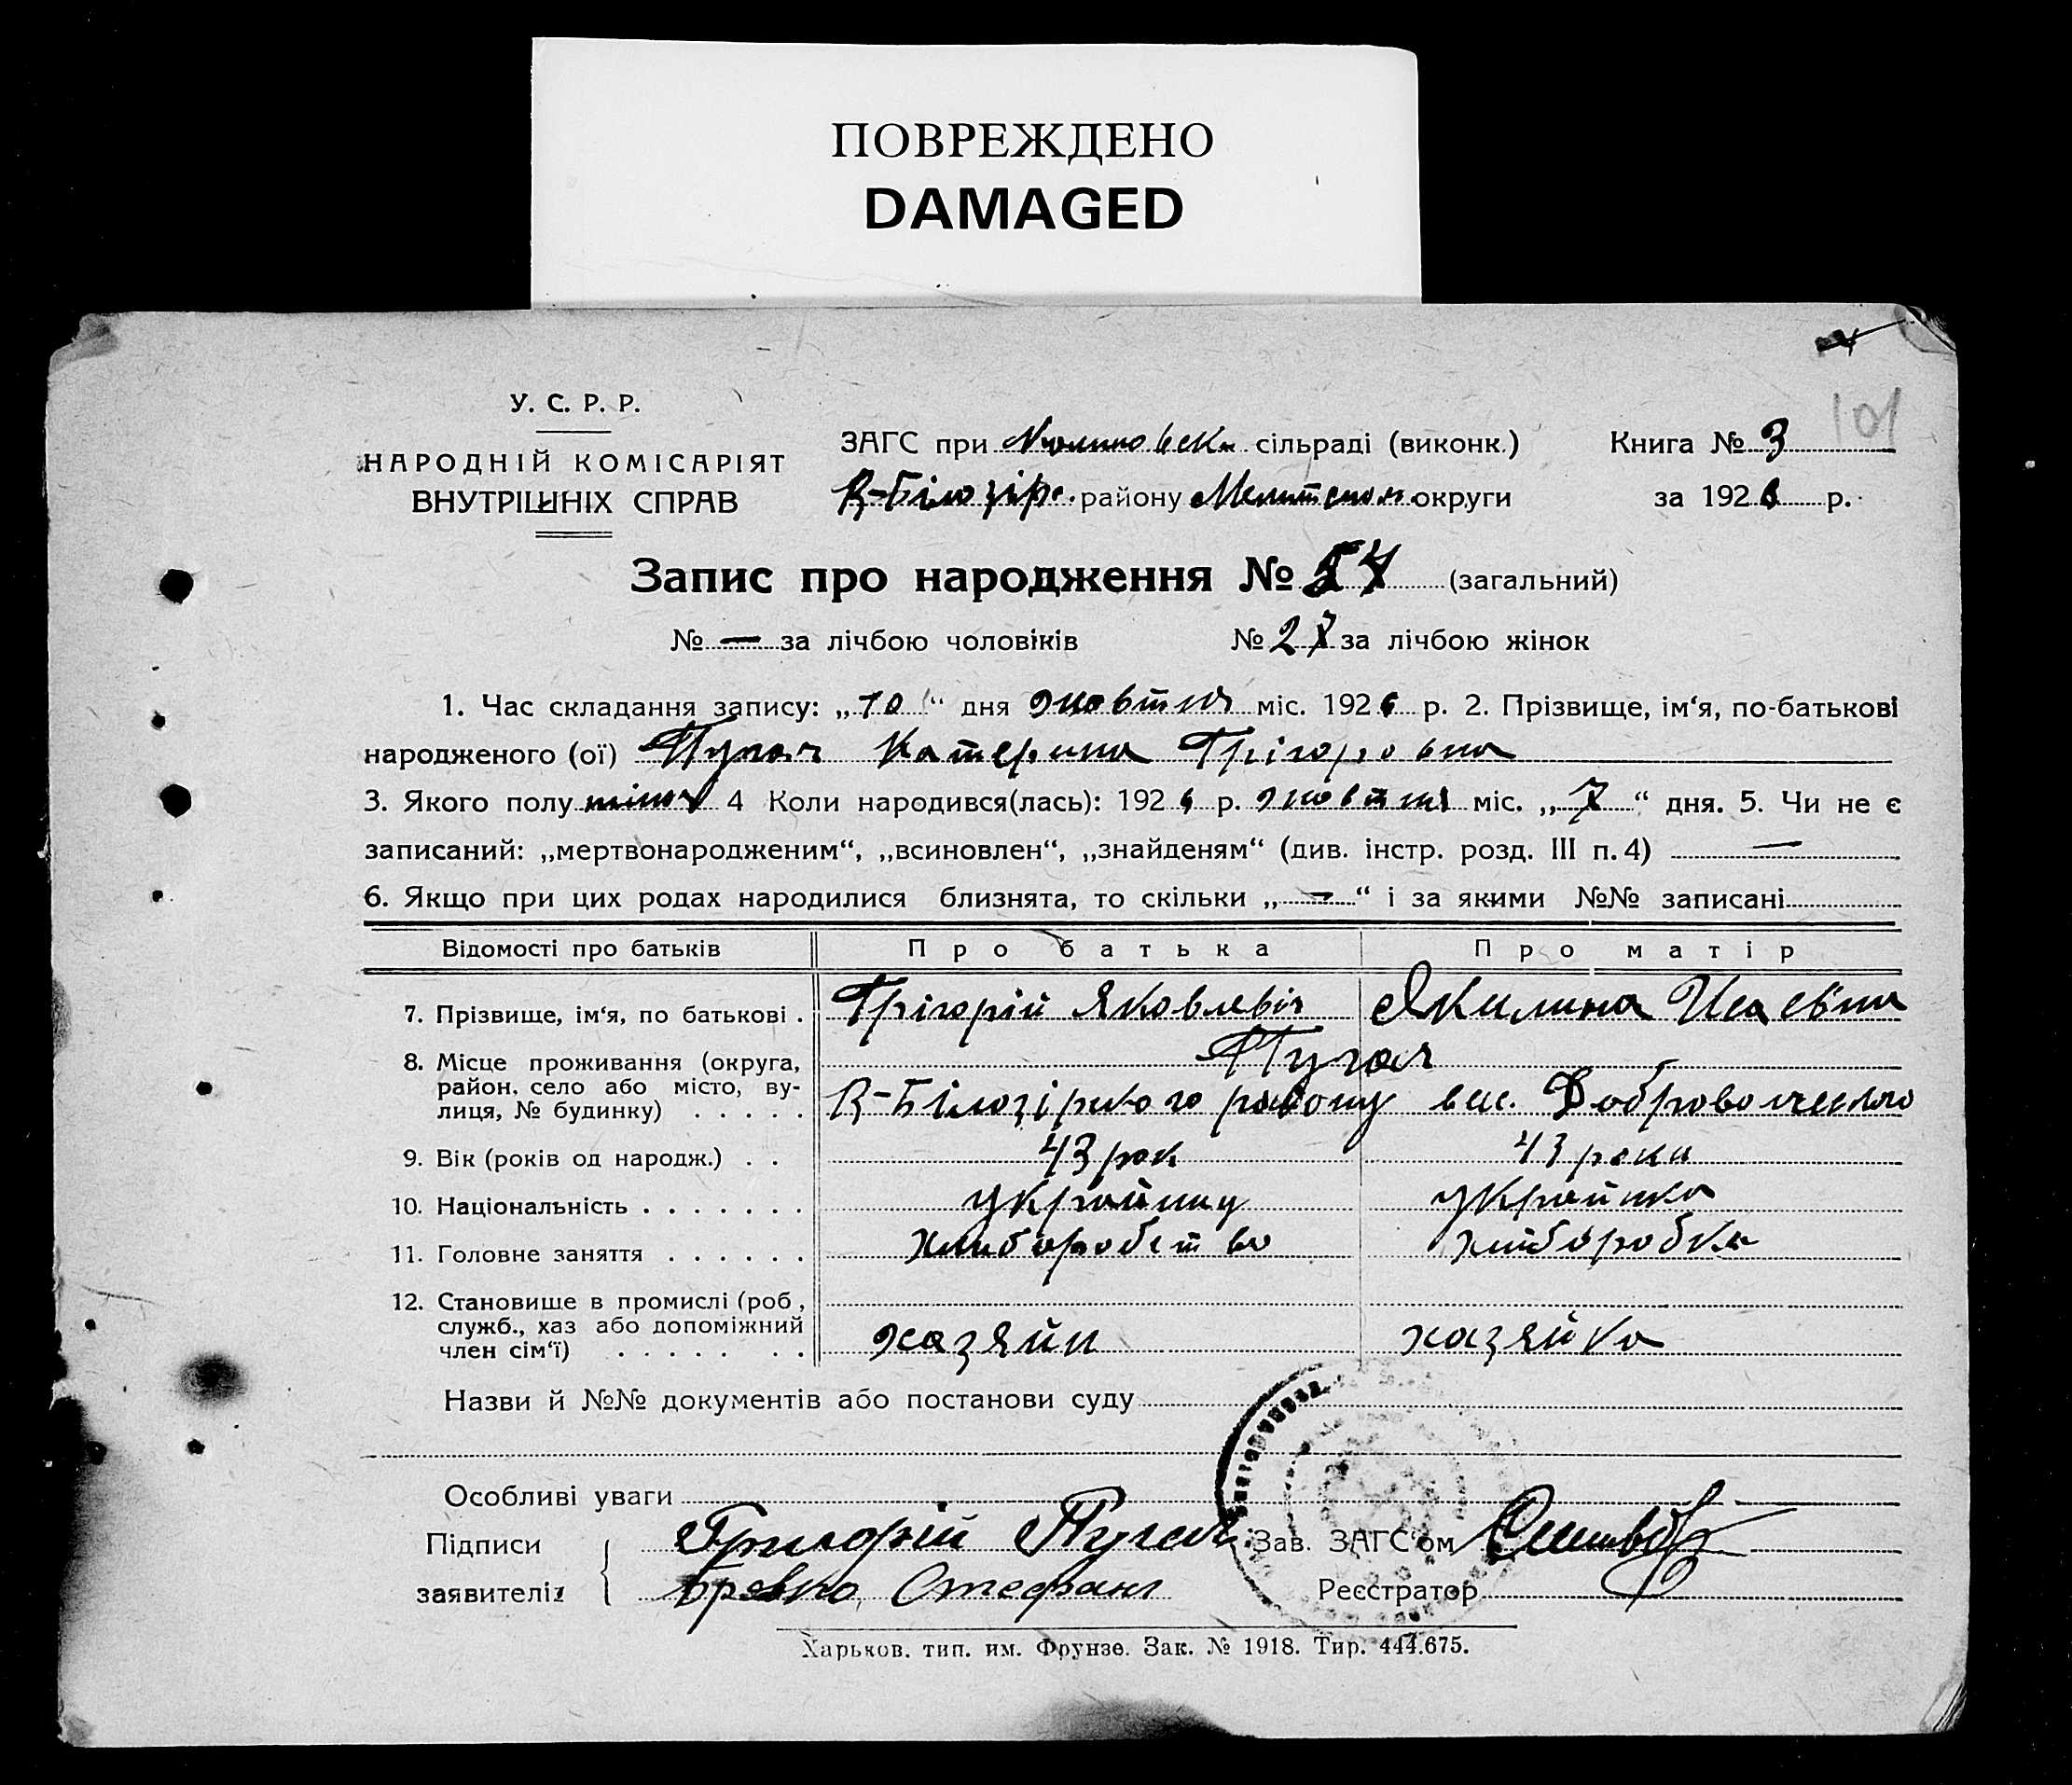 ПОВРЕЖДЕНО
DAMAGED
101
У. С. Р. Р.
НАРОДНІЙ КОМІСАРІЯТ
ВНУТРІШНІХ СПРАВ
ЗАГС при сільраді (виконк.)
Книга № 3
В-Білозір. району Мелитопол. округи
за 1926 р.
Запис про народження № 57 (загальний)
№ — за лічбою чоловіків № 27 за лічбою жінок
1. Час складання запису: „10“ дня жовтня міс. 1926 р. 2. Прізвище, ім‘я, по-батькові
народженого (ої) Пугач Катерина Грігоровна
3. Якого полу жіноч 4 Коли народився(лась): 1926 р. жовтня міс. „7“ дня. 5. Чи не є
записаний: „мертвонародженим“, „всиновлен“, „знайденям“ (див. інстр. розд. III п. 4) —
6. Якщо при цих родах народилися близнята, то скільки „—“ і за якими №№ записані
Відомості про батьків Про батька Про матір
7. Прізвище, ім‘я, по батькові . Грігорій Яковлевіч Якилина Исаевна
Пугач
8. Місце проживання (округа,
район, село або місто, ву-
лиця, № будинку) . . . . . В-Білозірького району вис. Добровольческого
9. Вік (років од народж.) . . 43 рок 43 роки
10. Національність . . . . . . . украйинц украйинка
11. Головне заняття . . . . . . хлиборобство хлиборобка
12. Становище в промислі (роб.,
служб., хаз або допоміжний
член сім‘ї) . . . . . . . хазяйн хазяйка
Назви й №№ документів або постанови суду
Особливі уваги
Підписи
заявителіз
Григорій Пугач
Стефан
Зав. ЗАГС‘ом
Реєстратор
Харьков. тип. им. Фрунзе. Зак. № 1918. Тир. 444.675.